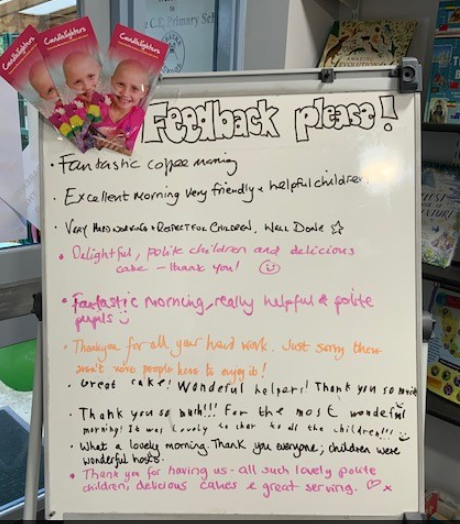 Candlelighters
Candlelighters
Candlelighters
C.E. Primary
Feedback please!
• Fantastic coffee morning
• Excellent morning very friendly & helpful children.
• VERY HARDWORKING + RESPECTFUL CHILDREN, WELL DONE ☆
• Delightful, polite children and delicious
cake – thank you! ☺
• Fantastic morning, really helpful & polite
pupils ☺
• Thankyou for all your hard work. Just sorry there
wasn't more people here to enjoy it!
• Great cake! Wonderful helpers! Thank you so much
• Thank you so much!!! For the most wonderful
morning! It was lovely to chat to all the children!!! ☺
• What a lovely morning. Thank you everyone; children were
wonderful hosts.
• Thank you for having us - all such lovely polite
children, delicious cakes & great serving. ♡ x